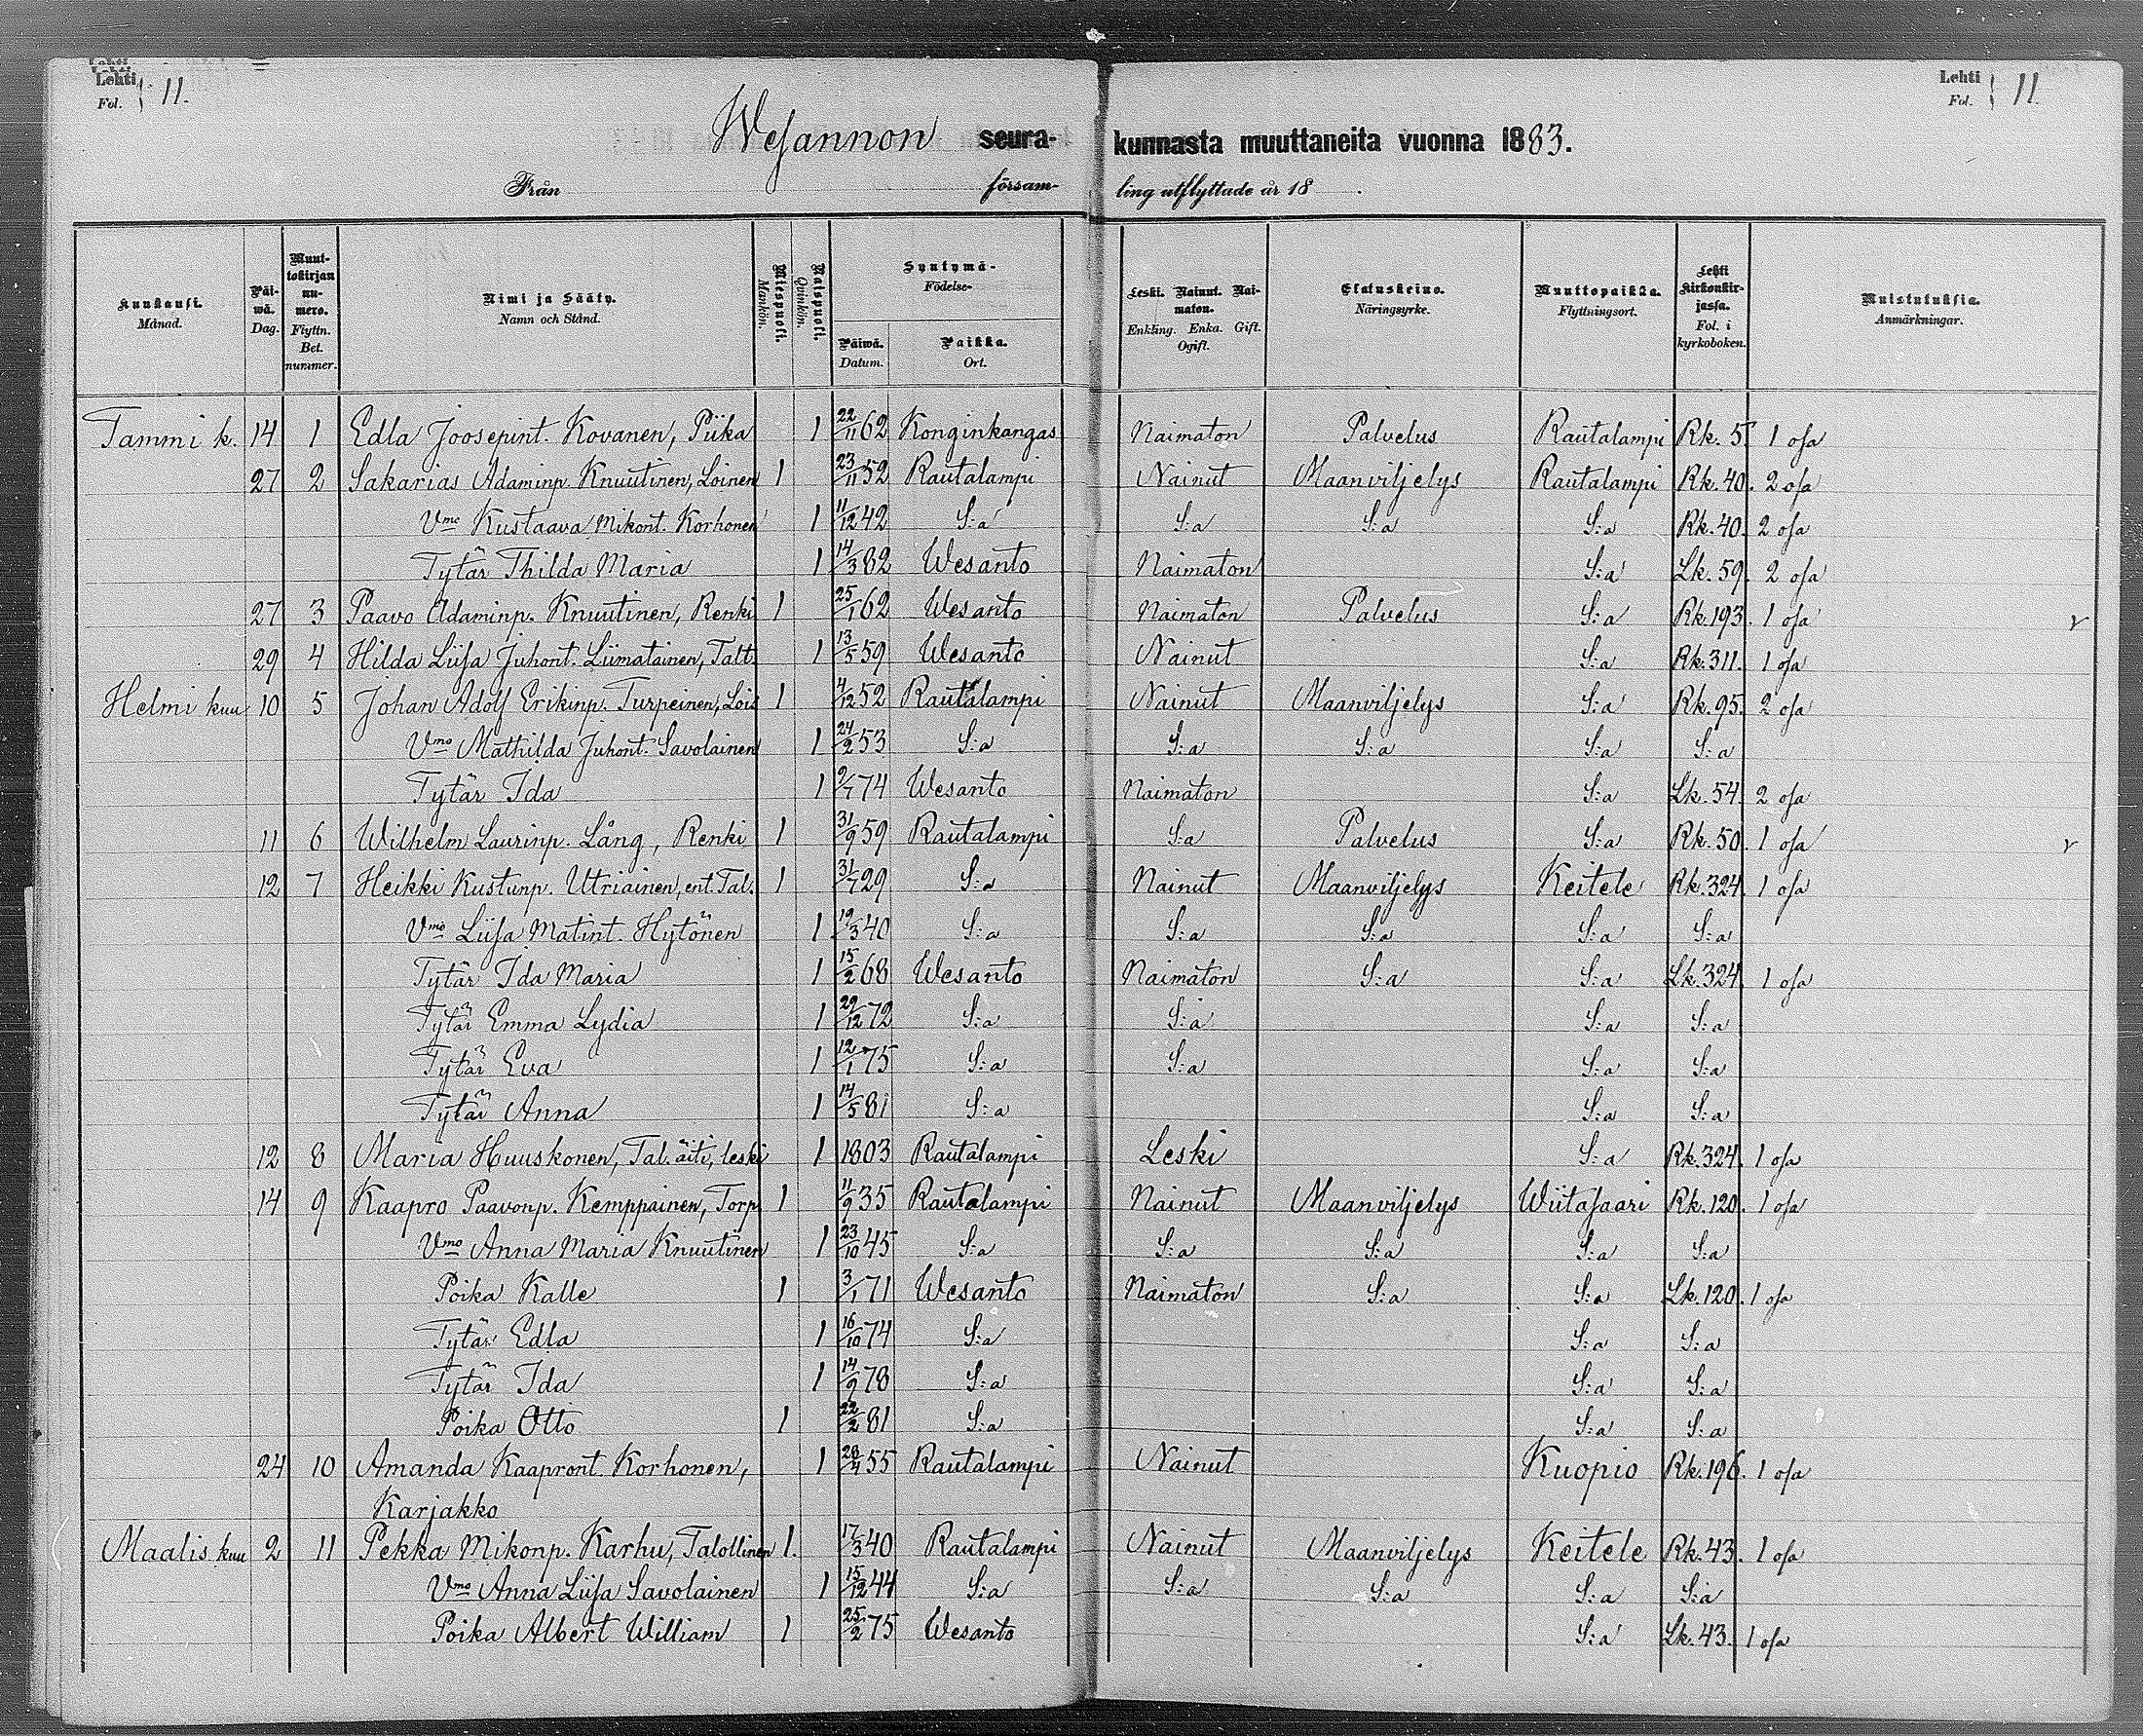 Lehti
Fol. } 11.
Lehti
Fol. } 11
Wesannon seura- kunnasta muuttaneita vuonna 1883.
Från förſam- ling utflyttade år 18 .
Kuukausi. Månad. Päi- wä. Dag. Muut- tokirjan nu- mero. Flyttn. Bet. nummer. Nimi ja Sääty. Namn och Stånd. Miespuoli. Mankön. Naispuoli. Qvinkön. Syntymä- Födelse- Päiwä. Datum. Paikka. Ort. Leski. Nainut. Nai- maton. Enkling. Enka. Gift. Ogift. Elatuskeino. Näringsyrke. Muuttopaikka. Flyttningsort. Lehti kirkonkir- jassa. Fol. i kyrkoboken. Muistutuksia. Anmärkningar.
Tammi k. 14 1 Edla Joosepint. Kovanen, Piika 1 22/11 62 Konginkangas Naimaton Palvelus Rautalampi Rk. 5 1 osa
27 2 Sakarias Adaminp. Knuutinen, Loinen 1 23/11 52 Rautalampi Nainut Maanviljelys Rautalampi Rk. 40. 2 osa
Vmo Kustaava Mikont. Korhonen 1 11/12 42 S:a S:a S:a S:a Rk. 40. 2 osa
Tytär Thilda Maria 1 14/3 82 Wesanto Naimaton S:a Lk. 59. 2 osa
27 3 Paavo Adaminp. Knuutinen, Renki 1 25/1 62 Wesanto Naimaton Palvelus S:a Rk. 193. 1 osa
29 4 Hilda Liisa Juhont. Liimatainen, Talt. 1 13/5 59 Wesanto Nainut S:a Rk. 311. 1 osa
Helmi kuu 10 5 Johan Adolf Erikinp. Turpeinen, Lois 1 4/12 52 Rautalampi Nainut Maanviljelys S:a Rk. 95. 2 osa
Vmo Mathilda Juhont. Savolainen 1 24/2 53 S:a S:a S:a S:a S:a
Tytär Ida 1 9/7 74 Wesanto Naimaton S:a Lk. 54. 2 osa
11 6 Wilhelm Laurinp. Lång, Renki 1 31/9 59 Rautalampi S:a Palvelus S:a Rk. 50. 1 osa
12 7 Heikki Kustunp. Utriainen, ent. Tal. 1 31/7 29 S:a Nainut Maanviljelys Keitele Rk. 324. 1 osa
Vmo Liisa Matint. Hytönen 1 19/3 40 S:a S:a S:a S:a S:a
Tytär Ida Maria 1 15/2 68 Wesanto Naimaton S:a S:a Lk. 324. 1 osa
Tytär Emma Lydia 1 29/12 72 S:a S:a S:a S:a
Tytär Eva 1 12/1 75 S:a S:a S:a S:a
Tytär Anna 1 14/5 81 S:a S:a S:a
12 8 Maria Huuskonen, Tal. äiti, leski 1 1803 Rautalampi Leski S:a Rk. 324. 1 osa
14 9 Kaapro Paavonp. Kemppainen, Torp. 1 11/9 35 Rautalampi Nainut Maanviljelys Wiitasaari Rk. 120. 1 osa
Vmo Anna Maria Knuutinen 1 23/10 45 S:a S:a S:a S:a S:a
Poika Kalle 1 3/1 71 Wesanto Naimaton S:a S:a Lk. 120. 1 osa
Tytär Edla 1 16/10 74 S:a S:a S:a
Tytär Ida 1 14/9 78 S:a S:a S:a
Poika Otto 1 22/2 81 S:a S:a S:a
24 10 Amanda Kaapront. Korhonen, 1 55 Rautalampi Nainut Kuopio Rk. 196. 1 osa
Karjakko
Maalis kuu 2 11 Pekka Mikonp. Karhu, Talollinen 1. 17/3 40 Rautalampi Nainut Maanviljelys Keitele Rk. 43. 1 osa
Vmo Anna Liisa Savolainen 1 15/12 44 S:a S:a S:a S:a S:a
Poika Albert William 1 25/2 75 Wesanto S:a Lk. 43. 1 osa